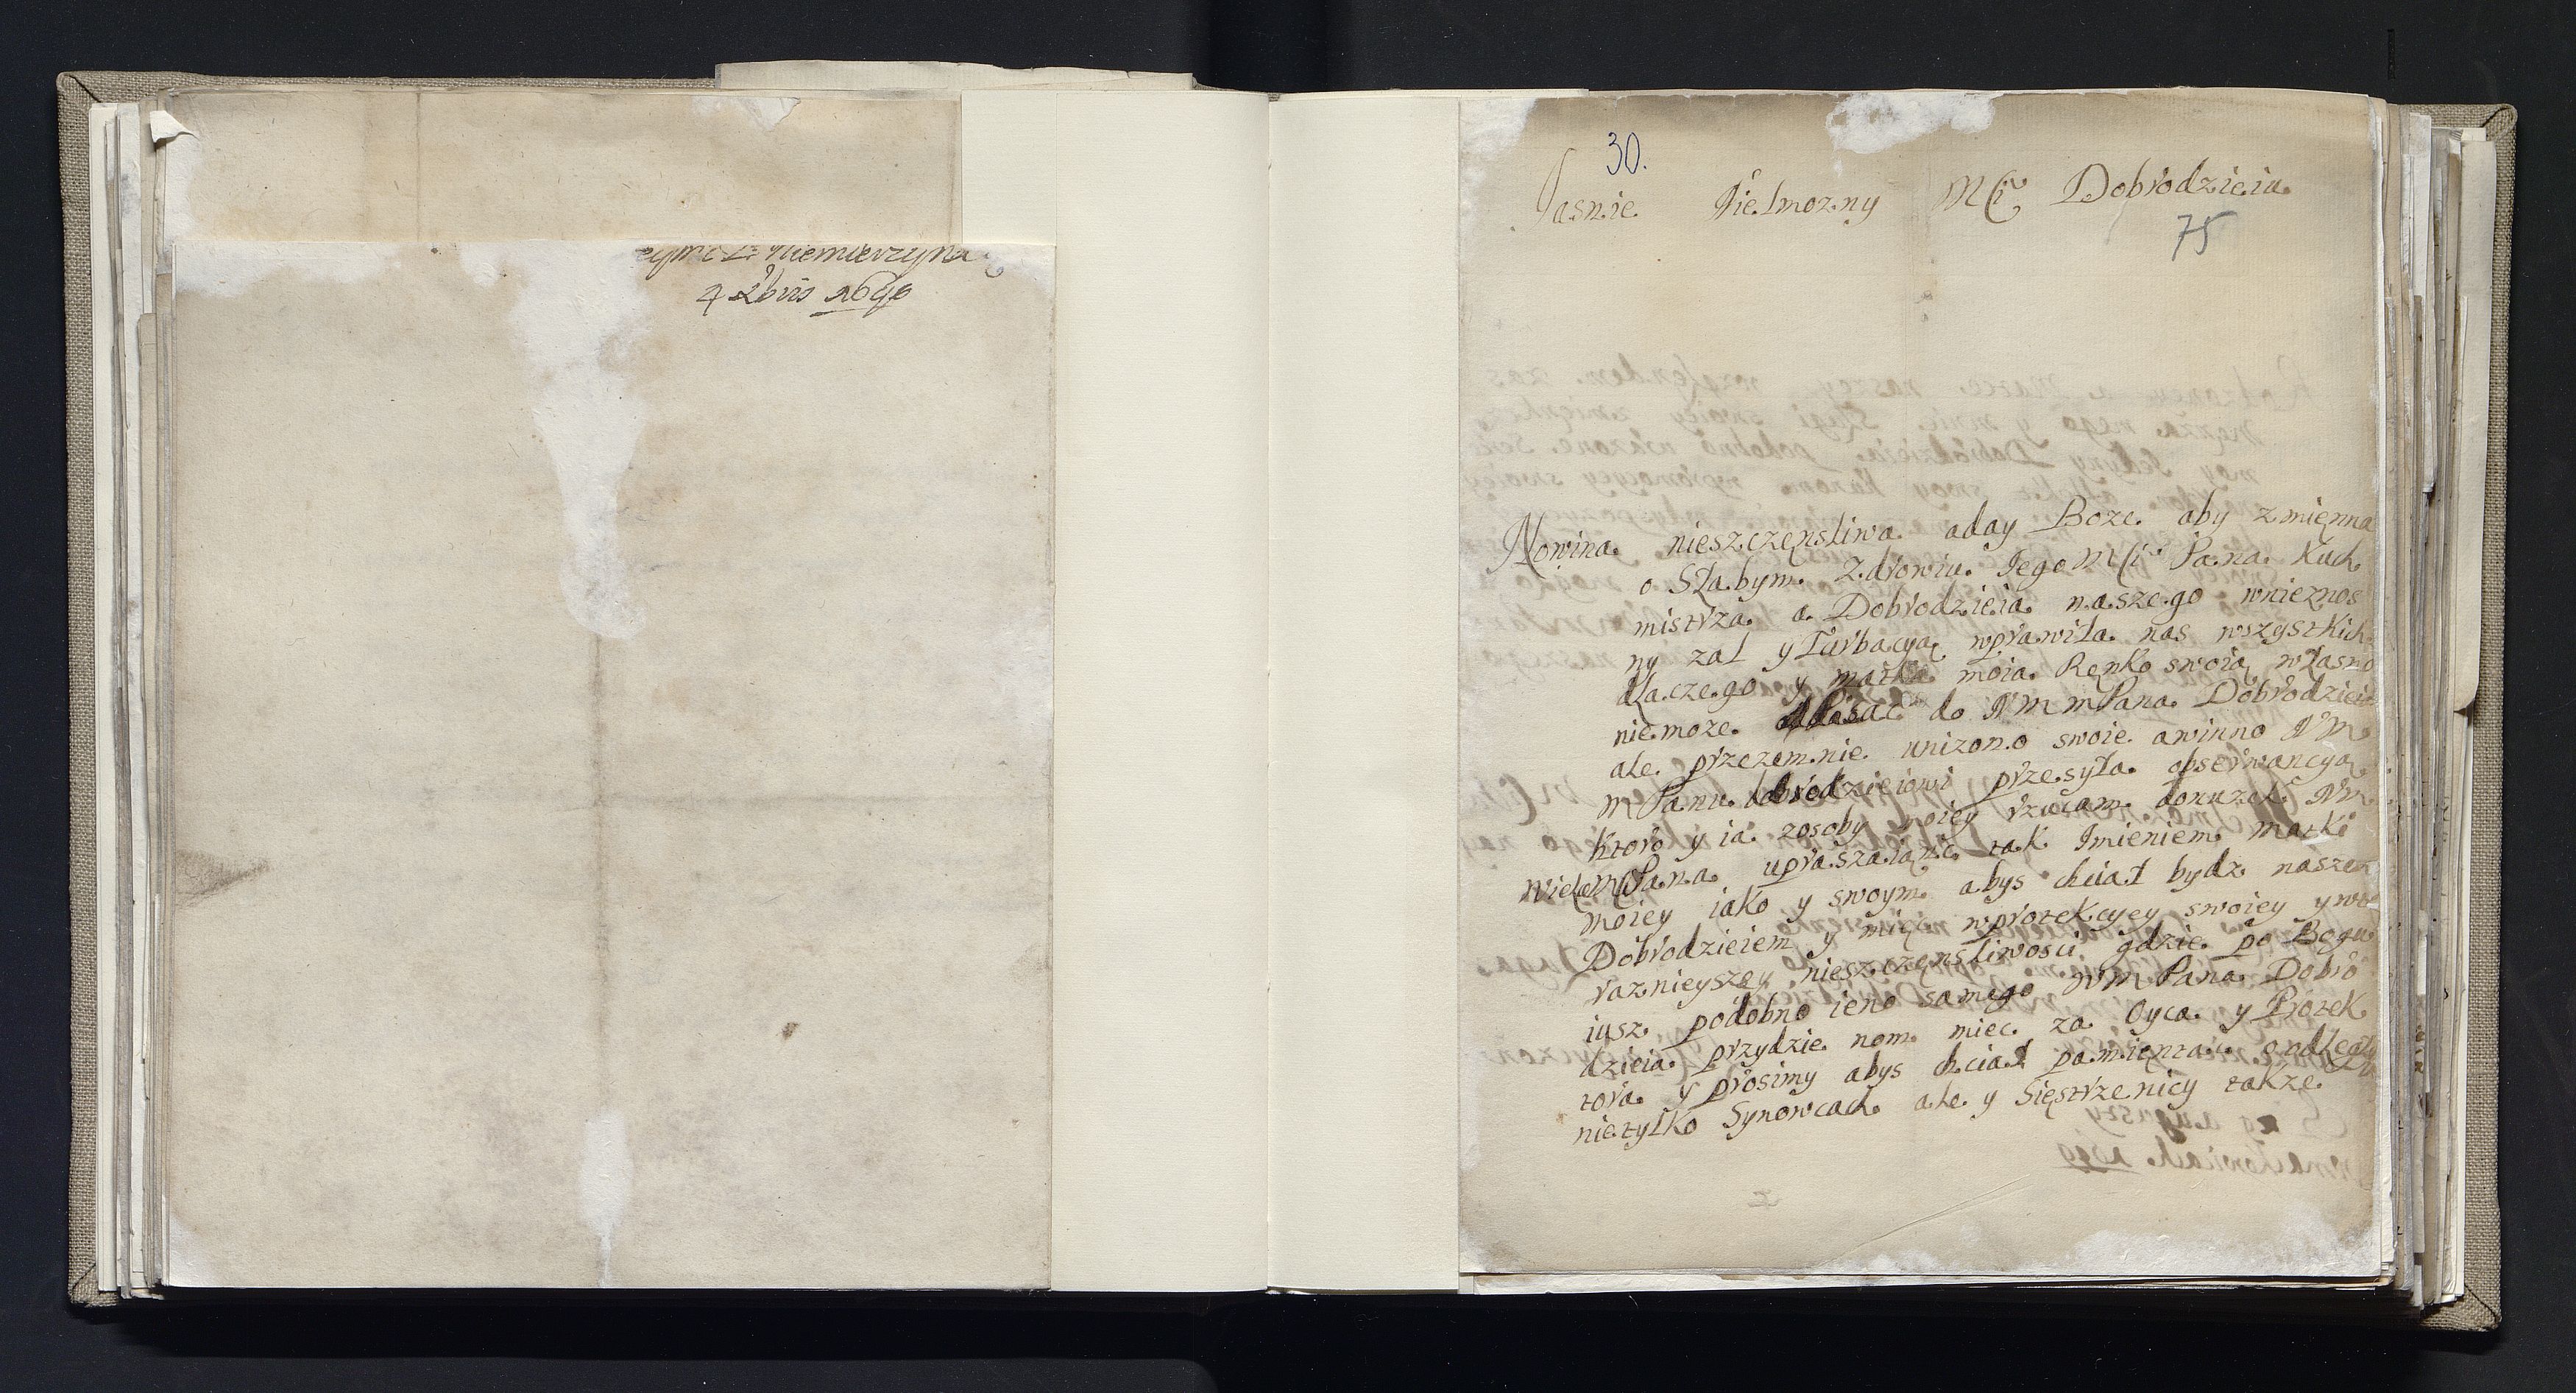 Niemierzyna
4 Xbris 1696
30.
Jasnie Wielmozny MCi Dobrodzieiu
75
Nowina nieszczęnsliwa aday Boze aby zmięnna
o Słabym Zdrowiu Jego MCi Pana Kuch
mistrza a Dobrodzieia naszego wnieznos
ny zal y Turbacyą wprawiła nas wszystkich
dlaczego y matka moia Ręnko swoią własno
niemoze do WM mPana Dobrodzieia
ale przezemnie unizono swoie awinno WM
mPanu dobrodzieiowi przesyła obserwancyą
ktoro y ia zosoby moiey rzucam donuzek WM
WielmPana upraszaiąnc tak Imieniem matki
moiey iako y swoym abys chciał bydz naszem
Dobrodzieiem y miec wprotekcyey swoiey ywte
raznieyszey nieszczęnsliwosci gdzie po Bogu
iusz podobno ieno samego WM Pana Dobro
dzieia przydzie nom miec za Oyca y Protek
tora y prosimy abys chciał pamięntac oodległy
nietylko Synowcach ale y Sięstrzenicy takze